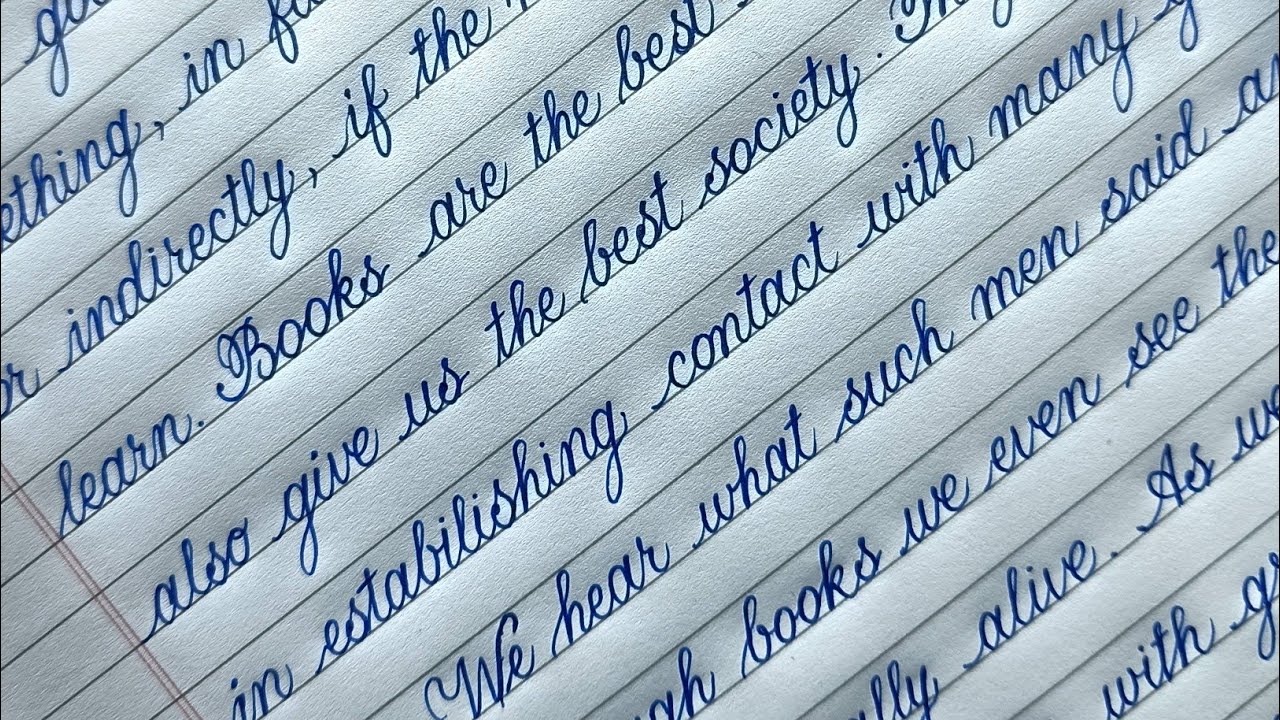 ething, in
r indirectly, if the
learn. Books are the best
also give us the best society.
in estabilishing contact with many
We hear what such men said
gh books we even see the
lly alive. As we
with